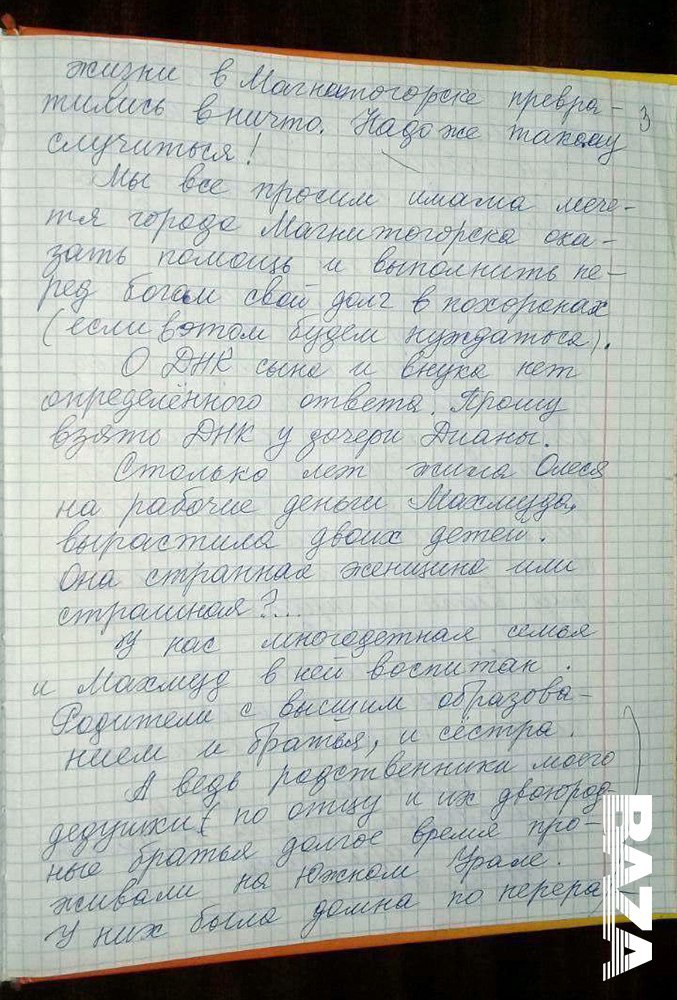 3
жизни в Магнитогорске превра-
тились в ничто. Надо же такому
случиться!
Мы все просим имама мече-
тя города Магнитогорска ока-
зать помощь и выполнить пе-
ред богом свой долг в похоронах
(если в этом будем нуждаться).
О ДНК сына и внука нет
определённого ответа. Прошу
взять ДНК у дочери Дианы.
Столько лет жила Олеся
на рабочие деньги Махмуда,
вырастила двоих детей.
Она странная женщина или
страшная?...
У нас многодетная семья
и Махмуд в ней воспитан.
Родители с высшим образова-
нием и братья, и сёстра.
А ведь родственники моего
дедушки ( по отцу и их двоюрод-
ные братья долгое время про-
живали на Южном Урале.
У них была домна по перера
BAZA